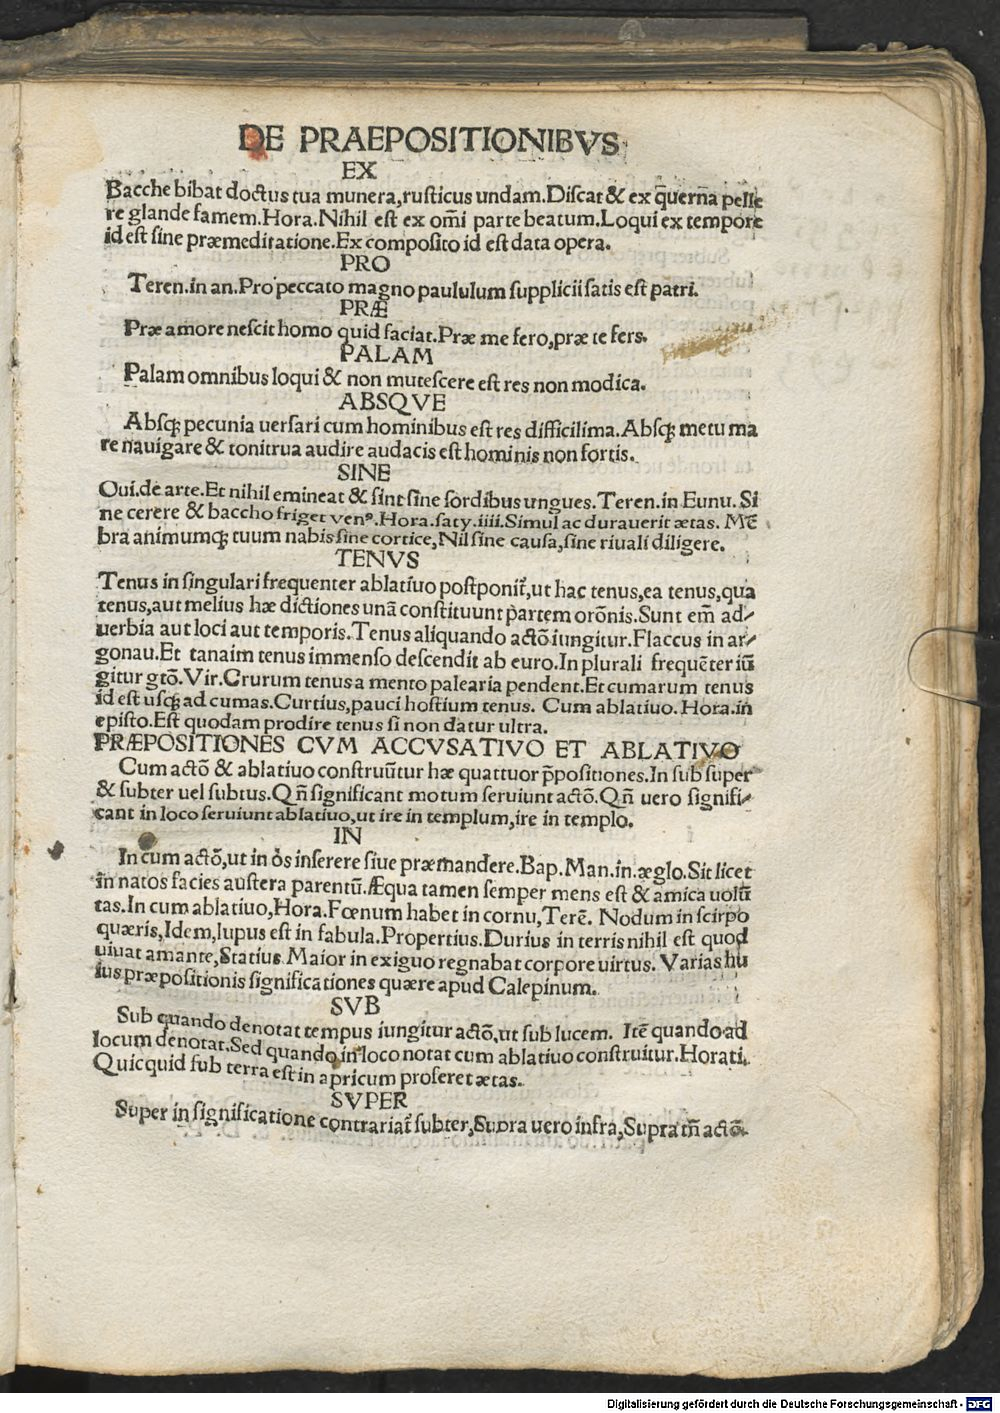 DE PRAEPOSITIONIBVS
EX
Bacche bibat doctus tua munera,rusticus undam.Discat & ex q̄uerna pelle
re glande famem.Hora.Nihil est ex om̄i parte beatum.Loqui ex tempore
id est sine præmeditatione.Ex composito id est data opera.
PRO
Teren.in an.Pro peccato magno paululum supplicii satis est patri.
PRÆ
Præ amore nescit homo quid faciat.Præ me fero,præ te fers.
PALAM
Palam omnibus loqui & non mutescere est res non modica.
ABSQVE
Absq; pecunia uersari cum hominibus est res difficilima.Absq; metu ma
re nauigare & tonitrua audire audacis est hominis non fortis.
SINE
Oui.de arte.Et nihil emineat & sint sine sordibus ungues.Teren.in Eunu.Si
ne cerere & baccho friget venꝰ.Hora.saty.iiii.Simul ac durauerit ætas. Mē
bra animumq; tuum nabis sine cortice,Nil sine causa,sine riuali diligere.
TENVS
Tenus in singulari frequenter ablatiuo postponit᷑,ut hac tenus,ea tenus,qua
tenus,aut melius hæ dictiones unā constituunt partem orōnis.Sunt em̄ ad-
uerbia aut loci aut temporis.Tenus aliquando actō iungitur.Flaccus in ar-
gonau.Et tanaim tenus immenso descendit ab euro.In plurali frequēter iū
gitur gtō.Vir.Crurum tenus a mento palearia pendent.Et cumarum tenus
id est usq; ad cumas.Curtius,pauci hostium tenus. Cum ablatiuo.Hora.in
episto.Est quodam prodire tenus si non datur ultra.
PRÆPOSITIONES CVM ACCVSATIVO ET ABLATIVO
Cum actō & ablatiuo construūtur hæ quattuor p̄positiones.In sub super
& subter uel subtus.Qn̄ significant motum seruiunt actō.Qn̄ uero signifi-
cant in loco seruiunt ablatiuo,ut ire in templum,ire in templo.
IN
In cum actō,ut in os inserere siue præmandere.Bap.Man.in.æglo.Sit licet
in natos facies austera parentū.Æqua tamen semper mens est & amica uolū
tas.In cum ablatiuo,Hora.Fœnum habet in cornu,Terē. Nodum in scirpo
quæris,Idem,lupus est in fabula.Propertius.Durius in terris nihil est quod
uiuat amante,Statius.Maior in exiguo regnabat corpore uirtus. Varias hu
ius præpositionis significationes quære apud Calepinum.
SVB
Sub quando denotat tempus iungitur actō,ut sub lucem. Itē quando ad
locum denotat.Sed quando in loco notat cum ablatiuo construitur.Horati.
Quicquid sub terra est in apricum proferet ætas.
SVPER
Super in significatione contrariat᷑ subter,Supra uero infra,Supra tn̄ actō
Digitalisierung gefördert durch die Deutsche Forschungsgemeinschaft - DFG